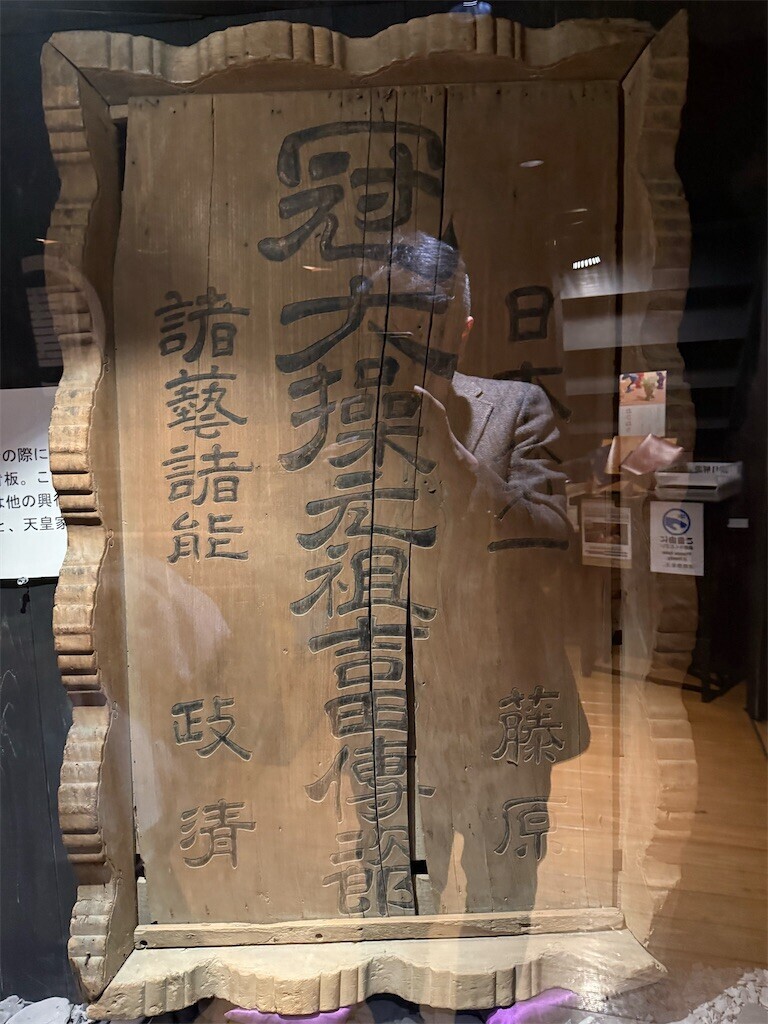 日本一
藤原
冠大操元祖吉田傳次郎
諸藝諸能
政清
の際に
看板。こ
は他の興行
と、天皇家